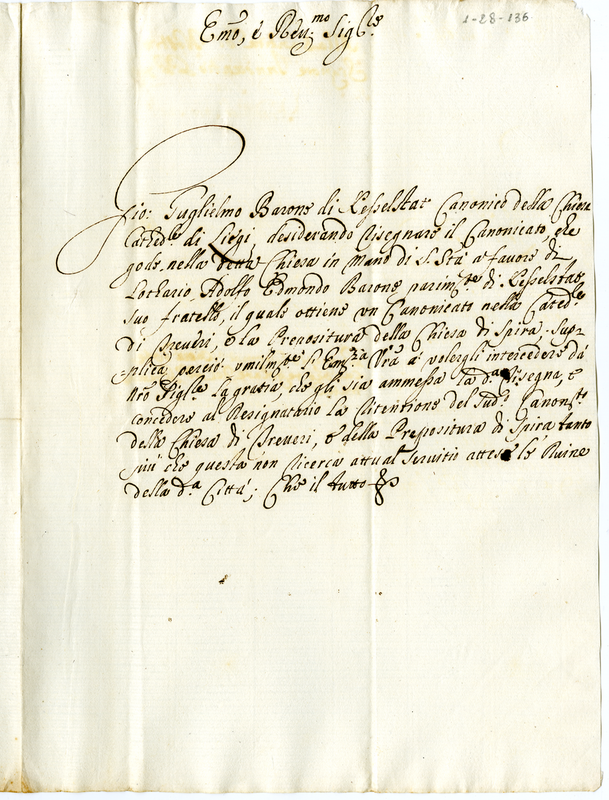 1-28-136
Emo, e Reu:mo Sig.re
Gio: Guglielmo Barone di Kesselstat Canonico della Chiesa
Cated.le di Liegi, desiderando risegnare il Canonicato, che
gode nella detta Chiesa in mano di S. Sta a fauore di
Lothario Adolfo Edmondo Barone parim.te di Kesselstat
suo fratello, il quale ottiene un Canonicato nella Cated.le
di Treueri, e la Prepositura della Chiesa di Spira; Sup-
plica perciò umilm.te l'Em.za Vra a volergli intercedere da
Nro Sig.re la gratia, che gli sia ammessa la d.a risegna, e
concedere al Resignatario la ritentione del sud.o Canon.to
della Chiesa di Treueri, e della Prepositura di Spira tanto
più che questa non ricerca attual seruitio attese le Ruine
della d.a Città; Che il tutto